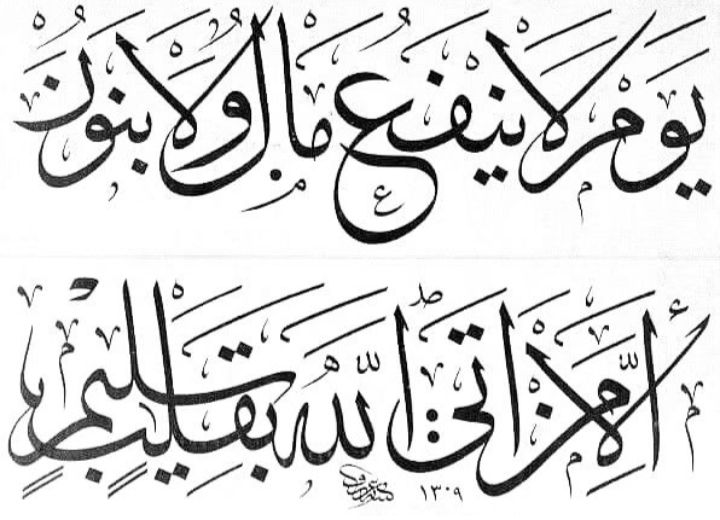 يَوْمَ لَا يَنْفَعُ مَالٌ وَلَا بَنُونَ
إِلَّا مَنْ أَتَى اللَّهَ بِقَلْبٍ سَلِيمٍ
١٣٠٩